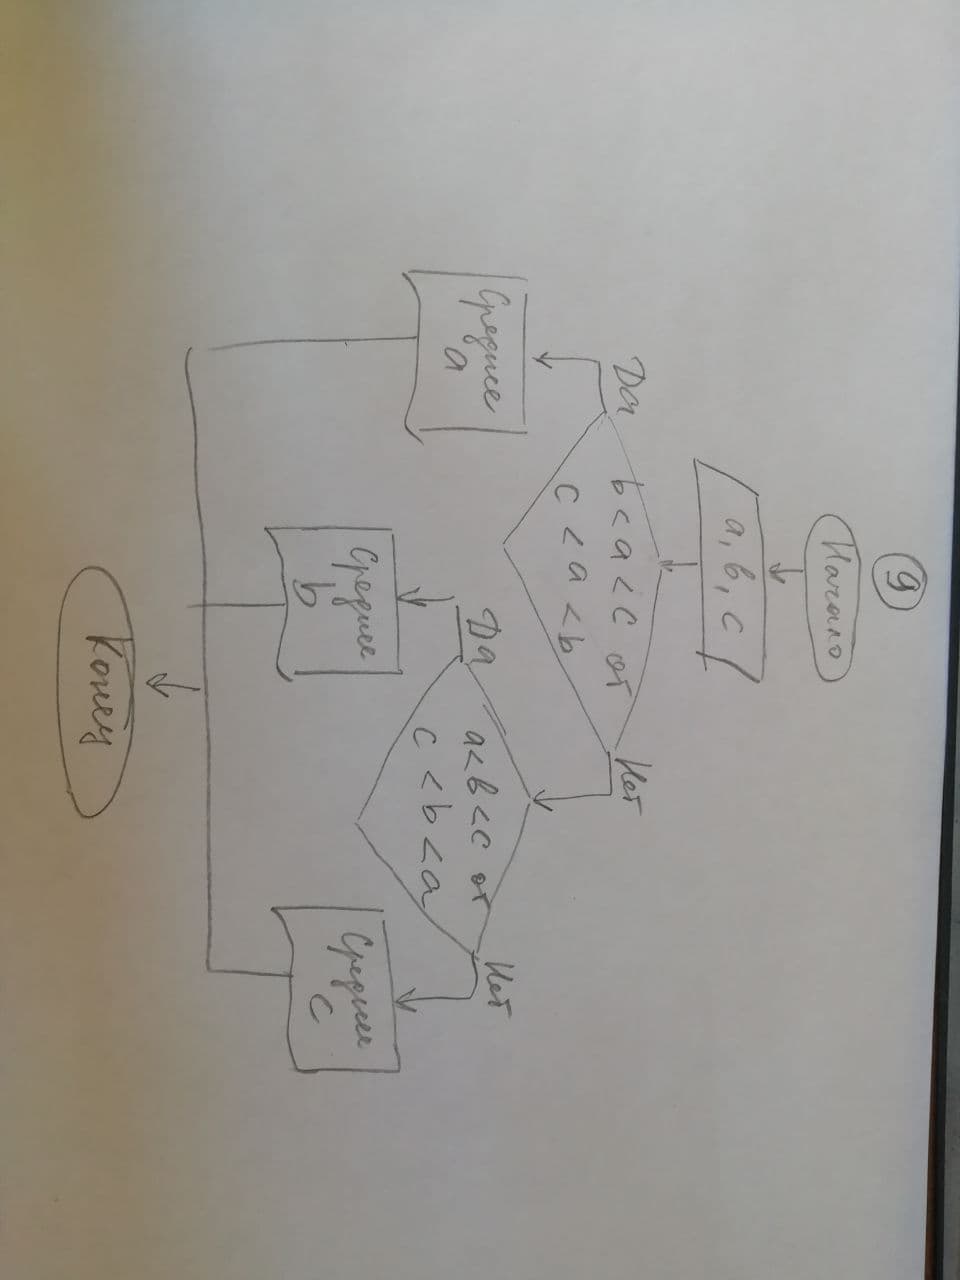 9
Начало
a, в, c
Да
b < a < c от
c < a < b
Нет
Среднее
a
Да
a < в < c от
c < b < a
Нет
Среднее
b
Среднее
c
Конец